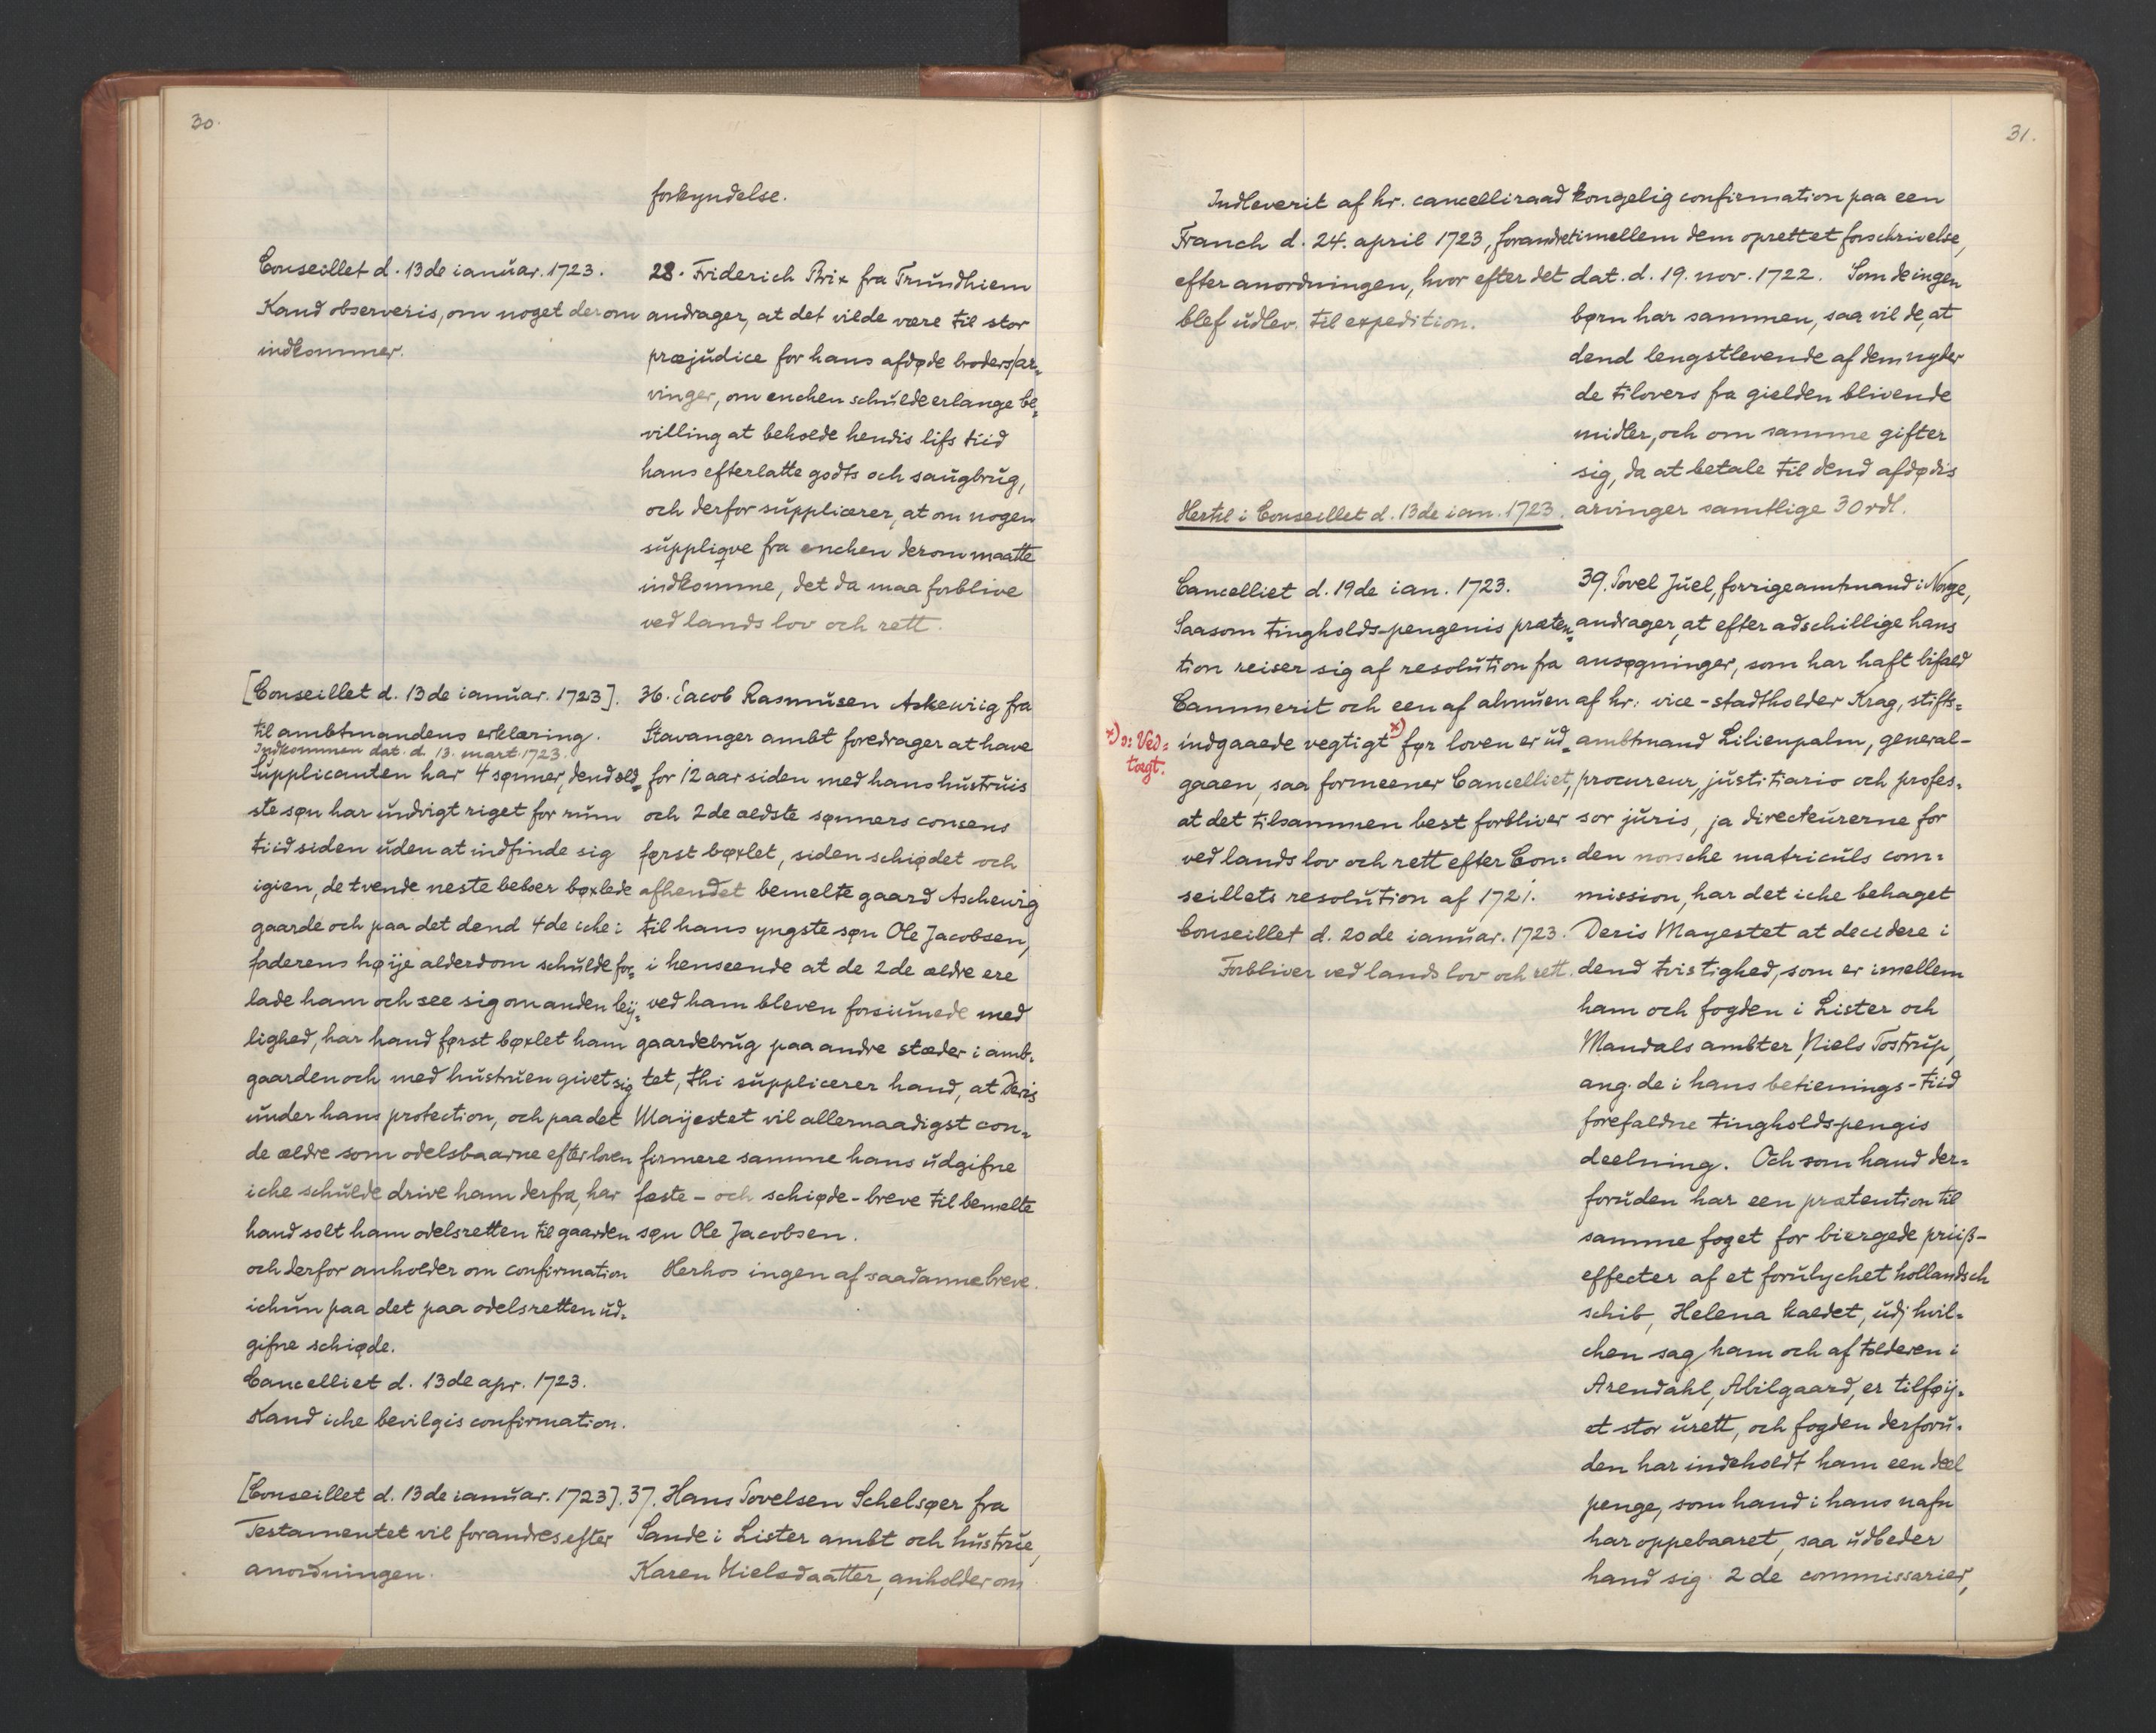 30.
forkyndelse.
Conseillet d. 13de ianuar. 1723.
Kand observeris, om noget derom
indkommer.
28. Friderich Brix fra Trundhiem
andrager, at det vilde være til stor
præjudice for hans afdøde broders ar=
vinger, om enchen schulde erlange be=
villing at beholde hendis lifs tiid
hans efterlatte godts och saugbrug,
och derfor supplicerer, at om nogen
suppliqve fra enchen derom maatte
indkomme, det da maa forblive
ved lands lov och rett.
[Conseillet d. 13de ianuar. 1723].
til ambtmandens erklæring.
Indkommen dat. d. 13. mart. 1723.
Supplicanten har 4 sønner, dend eld=
ste søn har undvigt riget for rum
tiid siden uden at indfinde sig
igien, de tvende neste beboer bøxlede
gaarde och paa det dend 4de iche i
faderens høije alderdom schulde for=
lade ham och see sig om anden leij=
lighed, har hand først bøxlet ham
gaarden och med hustruen givet sig
under hans protection, och paa det
de ældre som odelsbaarne efter loven
iche schulde drive ham derfra, har
hand solt ham odelsretten til gaarden
och derfor anholder om confirmation
ichun paa det paa odelsretten ud=
gifne schiøde.
Cancelliet d. 13de apr. 1723.
Kand iche bevilgis confirmation.
36. Jacob Rasmusen Askewiig fra
Stavanger ambt foredrager at have
for 12 aar siden med hans hustruis
och 2de ældste sønners consens
først bøxlet, siden schiødet och
afhendet bemelte gaard Aschewig
til hans yngste søn Ole Jacobsen,
i henseende at de 2de ældre ere
ved ham bleven forsiunede med
gaardebrug paa andre stæder i amb=
tet, thi supplicerer hand, at Deris
Maijestet vil allernaadigst con=
firmere samme hans udgifne
fæste- och schiøde-breve til bemelte
søn Ole Jacobsen.
Herhos ingen af saadanne breve.
[Conseillet d. 13de ianuar. 1723].
Testamentet vil forandres efter
anordningen.
37. Hans Tovelsen Schelsøer fra
Sande i Lister ambt och hustrue,
Karen Nielsdaatter, anholder om
31.
Indleverit af hr. cancelliraad
Franch d. 24. april 1723, forandret
efter anordningen, hvor efter det
blef udlev. til expedition.
Hertil i Conseillet d. 13de ian. 1723.
kongelig confirmation paa een
imellem dem oprettet forschrivelse,
dat. d. 19. nov. 1722. Som de ingen
børn har sammen, saa vil de, at
dend lengstlevende af dem nyder
de tilovers fra gielden blivende
midler, och om samme gifter
sig, da at betale til dend afdødis
arvinger samtlige 30 rdl.
Cancelliet d. 19de ian. 1723.
Saasom tingholds-pengenis præten=
tion reiser sig af resolution fra
Cammerit och een af almuen
indgaaede vegtigt x) før loven er ud=
gaaen, saa formeener Cancelliet,
at det tilsammen best forbliver
ved lands lov och rett efter Con=
seillets resolution af 1721.
Conseillet d. 20de ianuar. 1723.
Forbliver ved lands lov och rett.
x) ɔ: Ved=
tægt.
39. Povel Juel, forrige amtmand i Norge,
andrager, at efter adschillige hans
ansøgninger, som har haft bifald
af hr: vice-stadtholder Krag, stifts=
ambtmand Lilienpalm, general-
procureur, justitiario och profes=
sor juris, ja directeurerne for
den norsche matriculs com=
mission, har det iche behaget
Deris Mayestet at decidere i
dend tvistighed, som er imellem
ham och fogden i Lister och
Mandals ambter, Niels Tostrup,
ang. de i hans betienings-tiid
forefaldne tingholds-pengis
deelning. Och som hand der=
foruden har een prætention til
samme foget for biergede priiß-
effecter af et forulychet hollandsch
schib, Helena kaldet, udj hvil=
chen sag ham och af tolderen i
Arendahl, Abilgaard, er tilføij=
et stor urett, och fogden derforu=
den har indeholdt ham een deel
penge, som hand i hans nafn
har oppebaaret, saa udbeder
hand sig 2de commissarier,